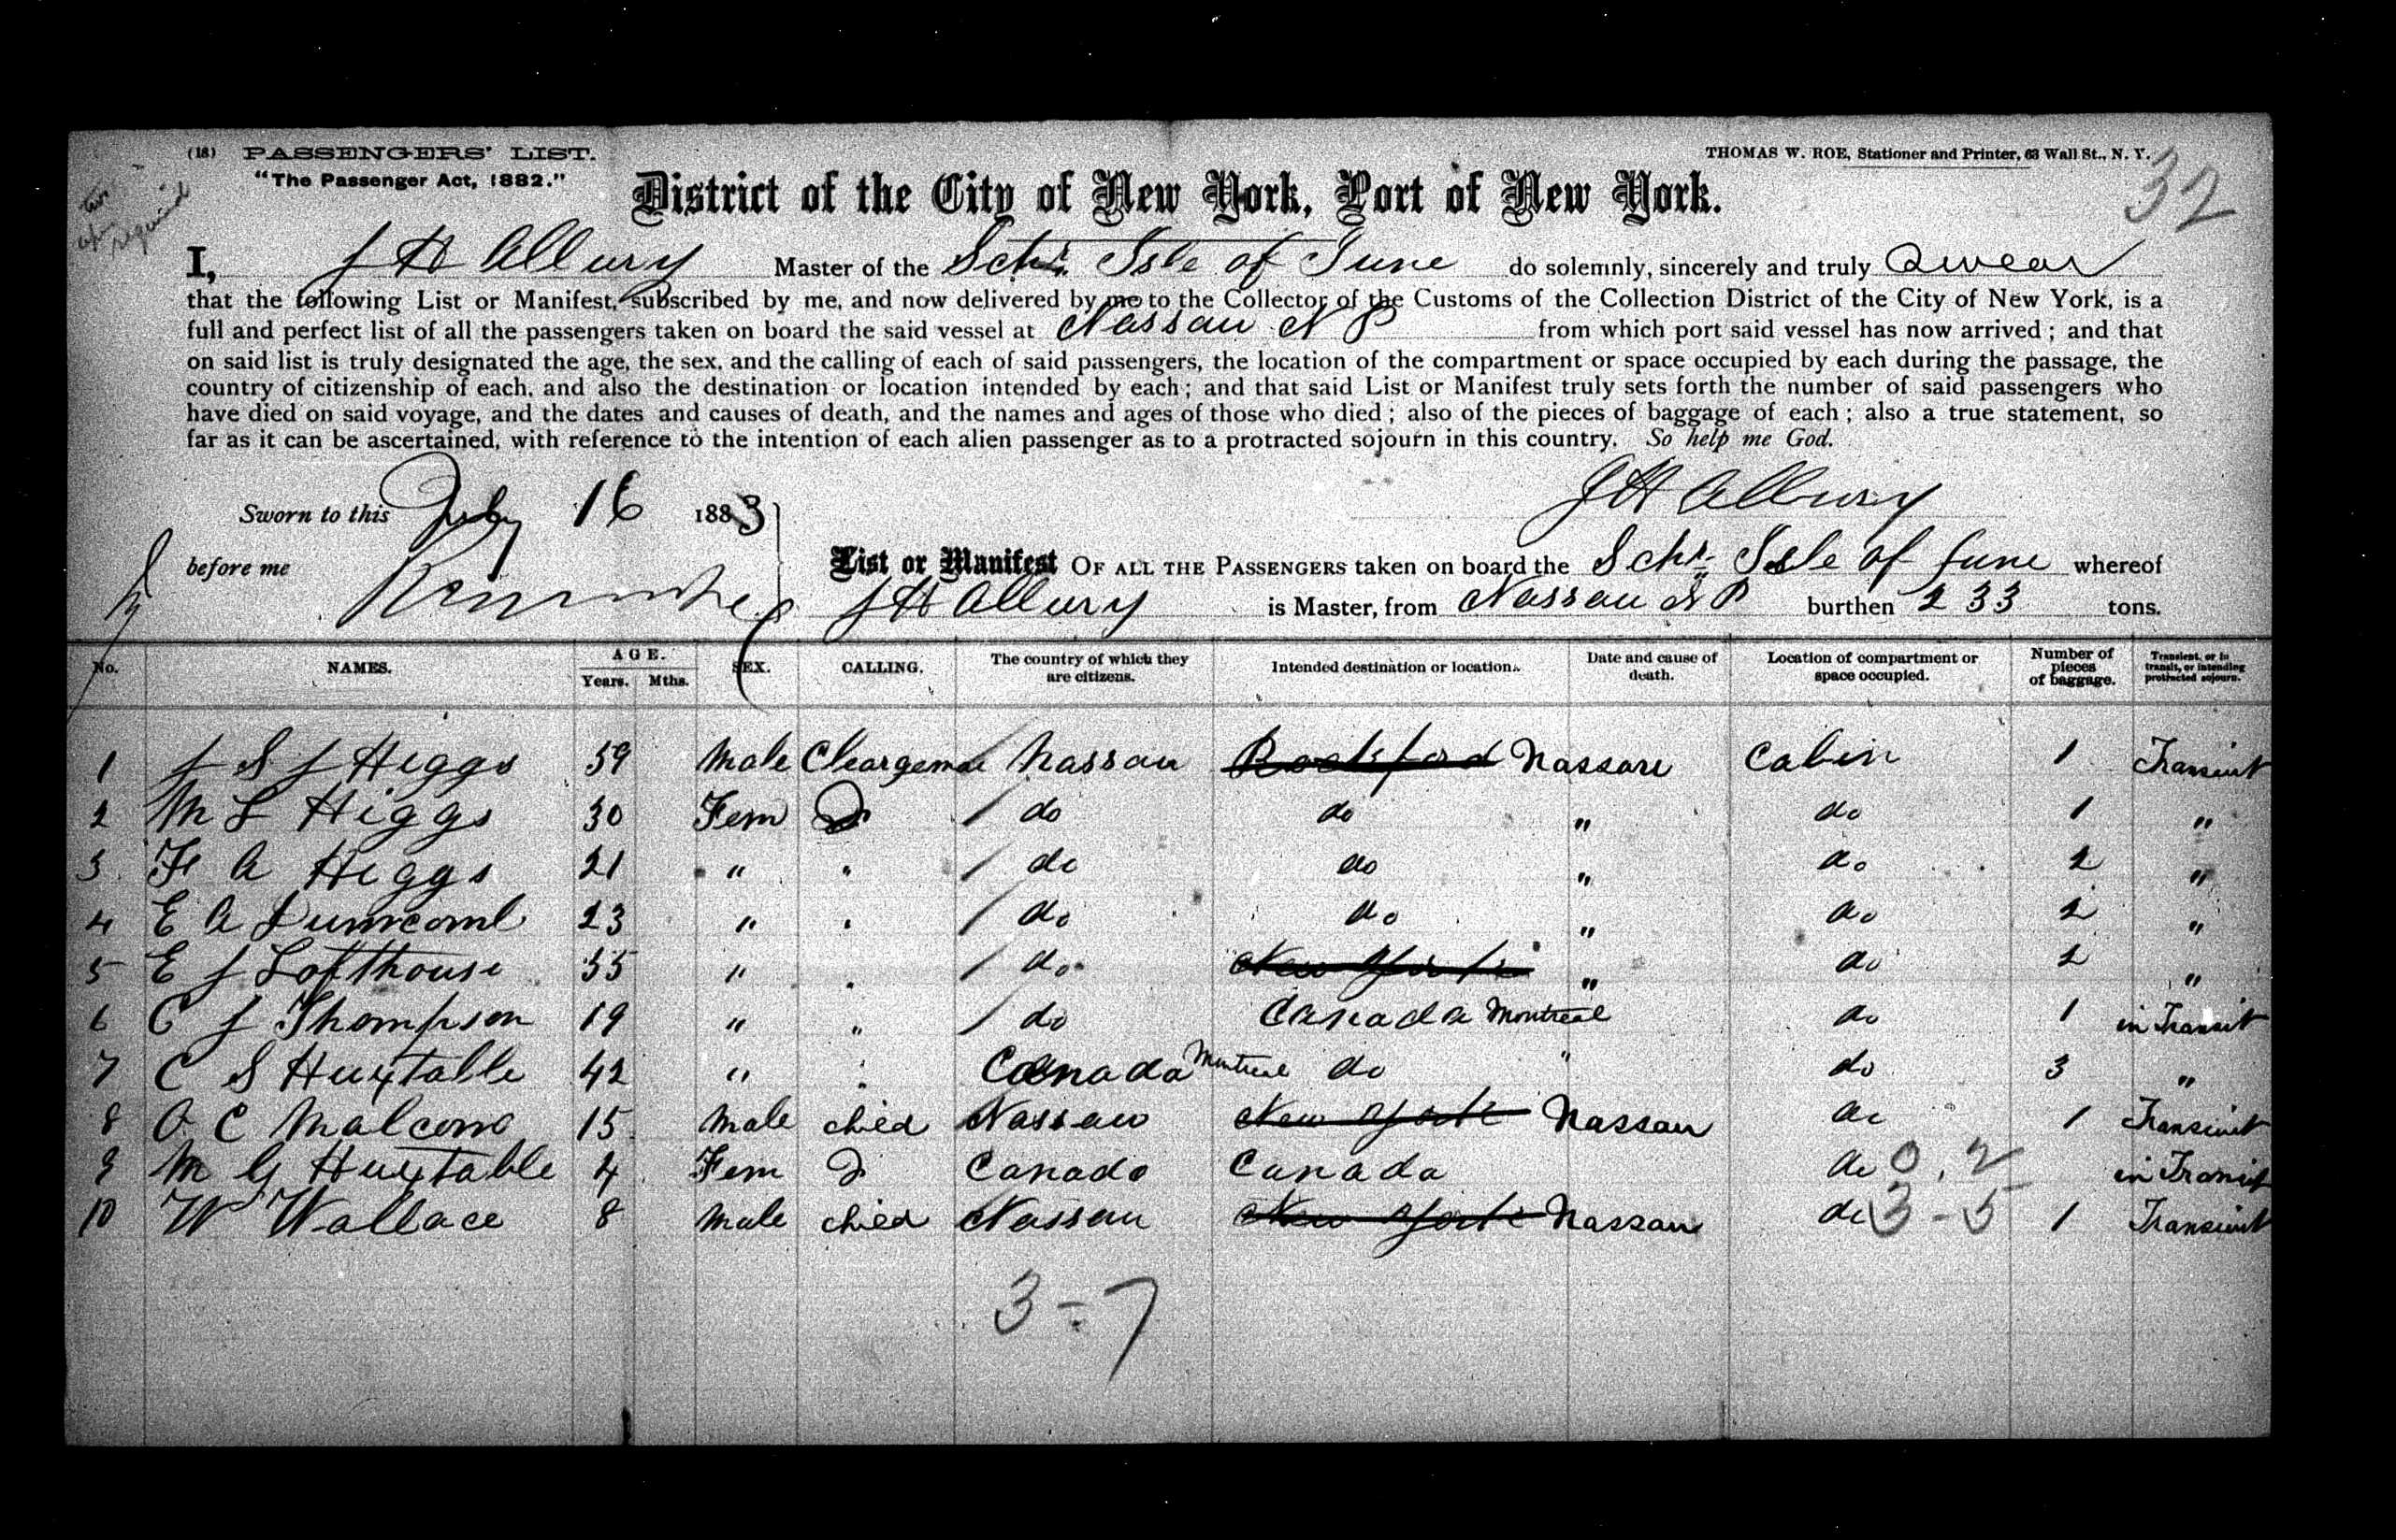 (18) PASSENGERS' LIST.
THOMAS W. ROE, Stationer and Printer, 63 Wall St., N. Y.
"The Passenger Act, 1882."
32
required
District of the City of New York, Port of New York.
I, J H Albury Master of the Schr. Isle of June do solemnly, sincerely and truly Swear
that the following List or Manifest, subscribed by me, and now delivered by me to the Collector of the Customs of the Collection District of the City of New York, is a
full and perfect list of all the passengers taken on board the said vessel at Nassau N P from which port said vessel has now arrived; and that
on said list is truly designated the age, the sex, and the calling of each of said passengers, the location of the compartment or space occupied by each during the passage, the
country of citizenship of each, and also the destination or location intended by each; and that said List or Manifest truly sets forth the number of said passengers who
have died on said voyage, and the dates and causes of death, and the names and ages of those who died; also of the pieces of baggage of each; also a true statement, so
far as it can be ascertained, with reference to the intention of each alien passenger as to a protracted sojourn in this country. So help me God.
J H Albury
Sworn to this July 16 1883
before me
List or Manifest OF ALL THE PASSENGERS taken on board the Schr Isle of June whereof
J H Albury is Master, from Nassau N P burthen 233 tons.
No. NAMES. AGE. Years. Mths. SEX. CALLING. The country of which they are citizens. Intended destination or location. Date and cause of death. Location of compartment or space occupied. Number of pieces of baggage. Transient, or in transit, or intending protracted sojourn.
1 J S J Higgs 59 Male Cleargeman Nassau Rockford Nassau Cabin 1 Transient
2 M L Higgs 30 Fem do do " do 1 "
3 F A Higgs 21 " " do do " do 2 "
4 E A Dunncomb 23 " " do do " do 2 "
5 E J Lofthouse 35 " " do New York " do 2 "
6 C J Thompson 19 " " do Canada Montreal do 1 in Transit
7 C S Huxtable 42 " " Canada Montreal do " do 3 "
8 A C Malcom 15 Male child Nassau New York Nassau do 1 Transient
9 M G Huxtable 4 Fem Do Canada Canada do 0, 2 in Transit
10 W Wallace 8 Male child Nassau New York Nassau do 3-5 1 Transient
3-7